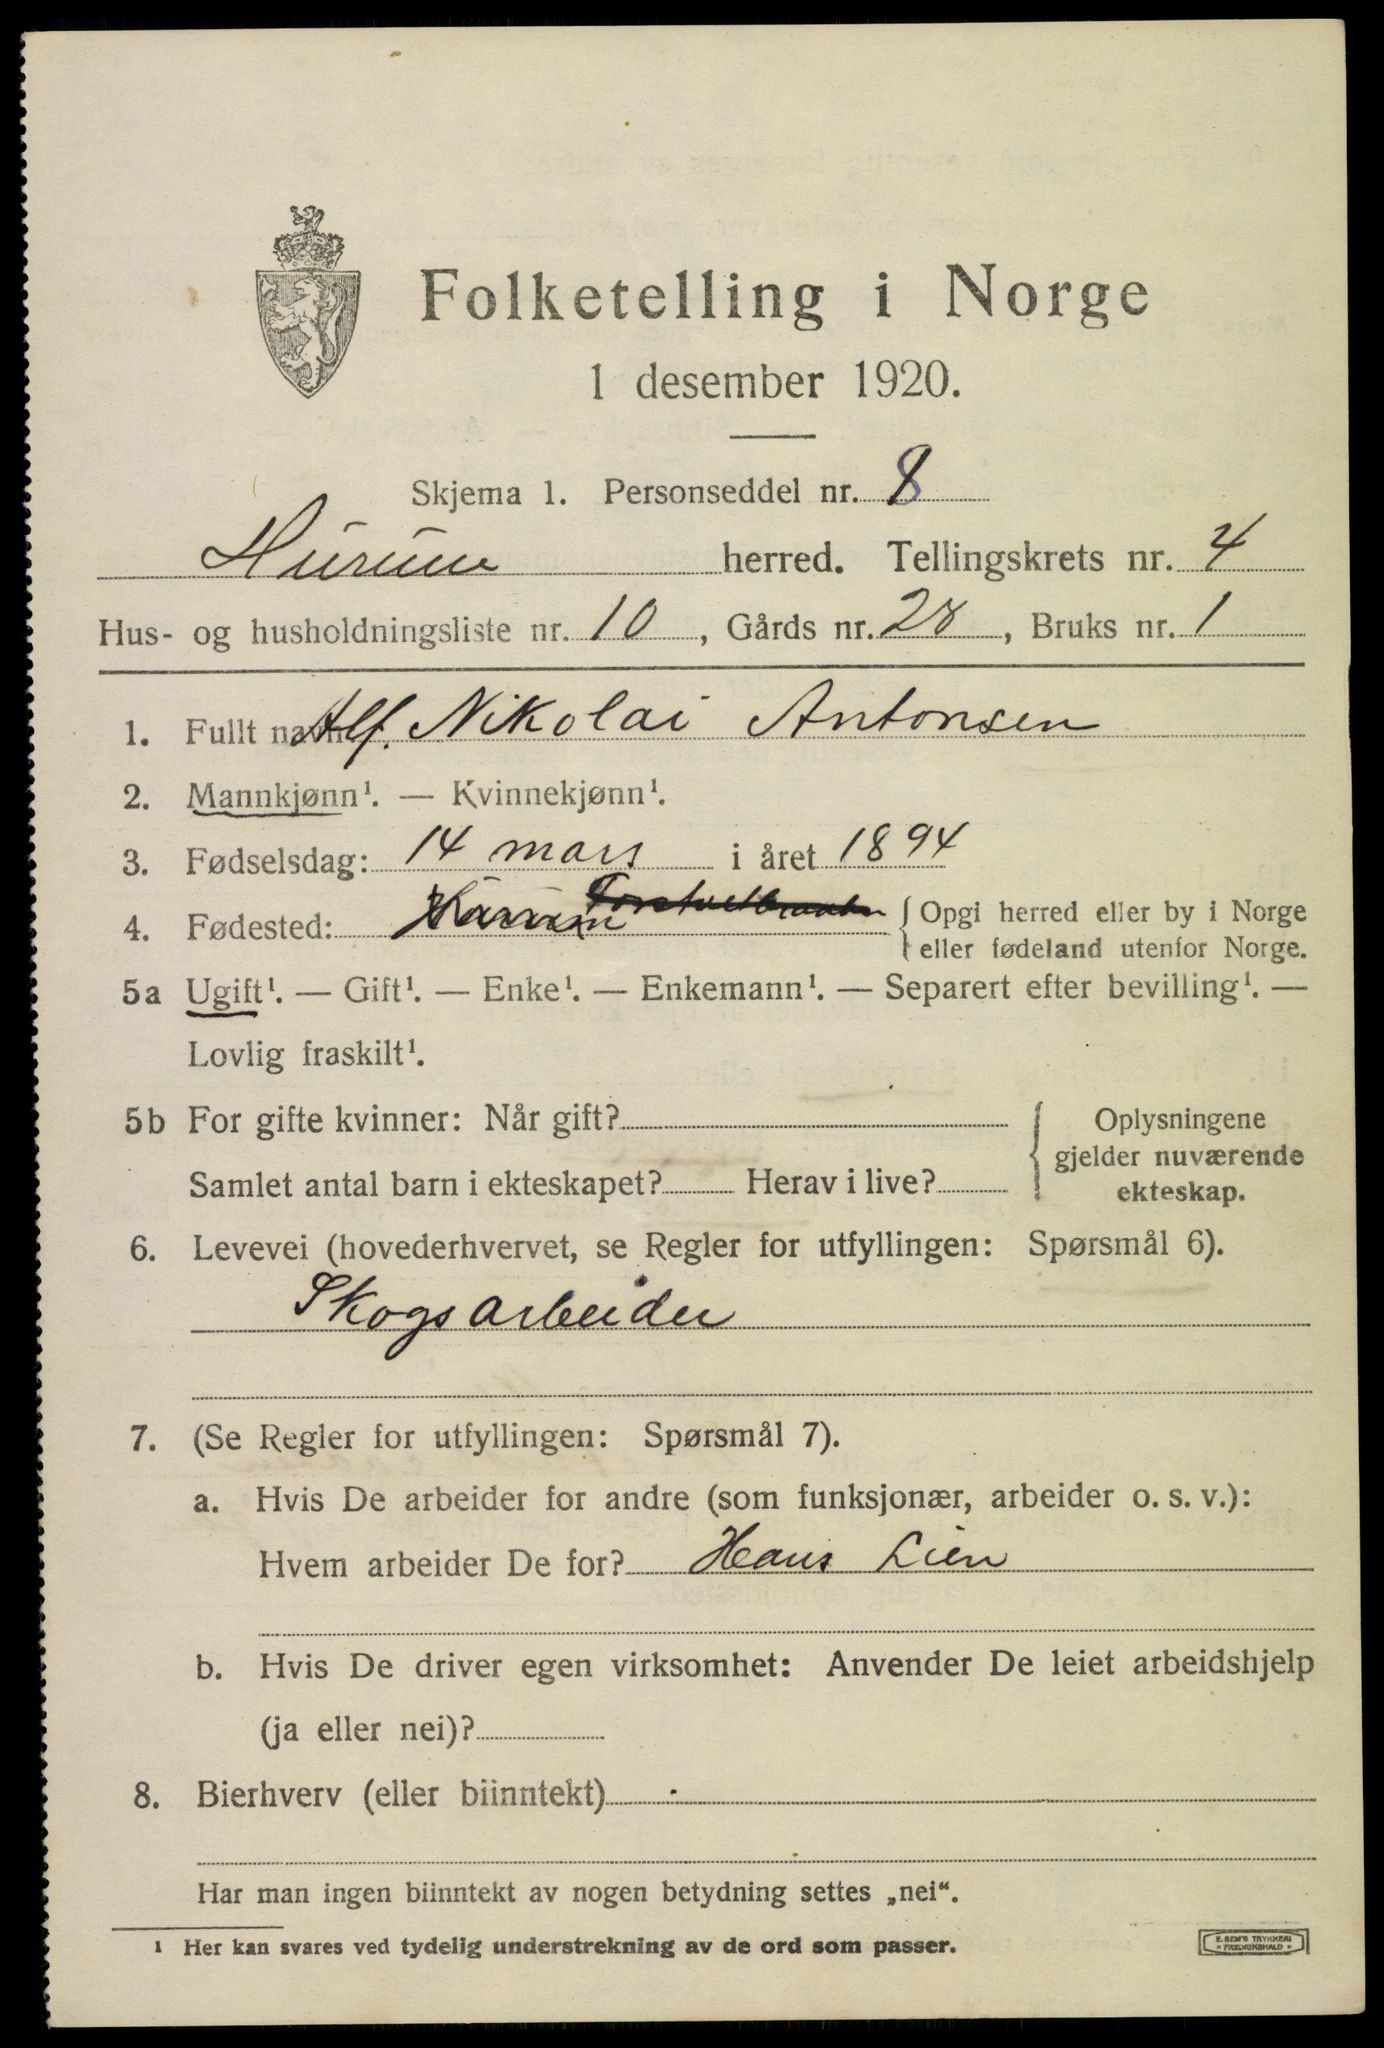 Folketelling i Norge
1 desember 1920.
Skjema 1. Personseddel nr. 8
Hurum herred. Tellingskrets nr. 4
Hus- og husholdningsliste nr. 10, Gårds nr. 28, Bruks nr. 1
1. Fullt navn: Alf. Nikolai Antonsen
2. Mannkjønn¹. — Kvinnekjønn¹.
3. Fødselsdag: 14 mars i året 1894
4. Fødested: Hurum { Opgi herred eller by i Norge
eller fødeland utenfor Norge.
5a Ugift¹. — Gift¹. — Enke¹. — Enkemann¹. — Separert efter bevilling¹. —
Lovlig fraskilt¹.
5b For gifte kvinner: Når gift? { Oplysningene
gjelder nuværende
Samlet antal barn i ekteskapet? Herav i live? ekteskap.
6. Levevei (hovederhvervet, se Regler for utfyllingen: Spørsmål 6).
Skogsarbeider
7. (Se Regler for utfyllingen: Spørsmål 7).
a. Hvis De arbeider for andre (som funksjonær, arbeider o. s. v.):
Hvem arbeider De for? Hans Lien
b. Hvis De driver egen virksomhet: Anvender De leiet arbeidshjelp
(ja eller nei)?
8. Bierhverv (eller biinntekt)
Har man ingen biinntekt av nogen betydning settes „nei“.
¹ Her kan svares ved tydelig understrekning av de ord som passer.
E. SEM'S TRYKKERI
* FREDRIKSHALD *